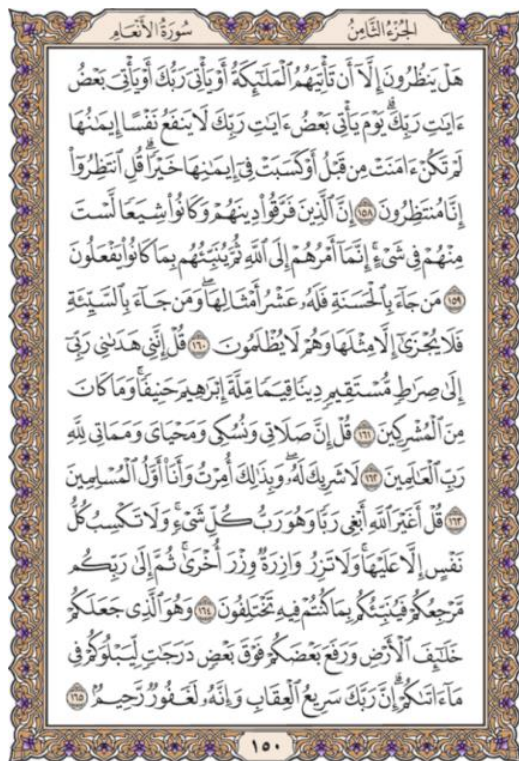 سُورَةُ الأَنْعَامِ
الجُزْءُ الثَّامِنُ
هَلْ يَنظُرُونَ إِلَّآ أَن تَأْتِيَهُمُ ٱلْمَلَٰٓئِكَةُ أَوْ يَأْتِىَ رَبُّكَ أَوْ يَأْتِىَ بَعْضُ
ءَايَٰتِ رَبِّكَۗ يَوْمَ يَأْتِى بَعْضُ ءَايَٰتِ رَبِّكَ لَا يَنفَعُ نَفْسًا إِيمَٰنُهَا
لَمْ تَكُنْ ءَامَنَتْ مِن قَبْلُ أَوْ كَسَبَتْ فِىٓ إِيمَٰنِهَا خَيْرًاۗ قُلِ ٱنتَظِرُوٓا۟
إِنَّا مُنتَظِرُونَ ١٥٨ إِنَّ ٱلَّذِينَ فَرَّقُوا۟ دِينَهُمْ وَكَانُوا۟ شِيَعًا لَّسْتَ
مِنْهُمْ فِى شَىْءٍۚ إِنَّمَآ أَمْرُهُمْ إِلَى ٱللَّهِ ثُمَّ يُنَبِّئُهُم بِمَا كَانُوا۟ يَفْعَلُونَ
١٥٩ مَن جَآءَ بِٱلْحَسَنَةِ فَلَهُۥ عَشْرُ أَمْثَالِهَاۖ وَمَن جَآءَ بِٱلسَّيِّئَةِ
فَلَا يُجْزَىٰٓ إِلَّا مِثْلَهَا وَهُمْ لَا يُظْلَمُونَ ١٦٠ قُلْ إِنَّنِى هَدَىٰنِى رَبِّىٓ
إِلَىٰ صِرَٰطٍ مُّسْتَقِيمٍ دِينًا قِيَمًا مِّلَّةَ إِبْرَٰهِيمَ حَنِيفًاۚ وَمَا كَانَ
مِنَ ٱلْمُشْرِكِينَ ١٦١ قُلْ إِنَّ صَلَاتِى وَنُسُكِى وَمَحْيَاىَ وَمَمَاتِى لِلَّهِ
رَبِّ ٱلْعَٰلَمِينَ ١٦٢ لَا شَرِيكَ لَهُۥۖ وَبِذَٰلِكَ أُمِرْتُ وَأَنَا۠ أَوَّلُ ٱلْمُسْلِمِينَ
١٦٣ قُلْ أَغَيْرَ ٱللَّهِ أَبْغِى رَبًّا وَهُوَ رَبُّ كُلِّ شَىْءٍۚ وَلَا تَكْسِبُ كُلُّ
نَفْسٍ إِلَّا عَلَيْهَاۚ وَلَا تَزِرُ وَازِرَةٌ وِزْرَ أُخْرَىٰۚ ثُمَّ إِلَىٰ رَبِّكُم
مَّرْجِعُكُمْ فَيُنَبِّئُكُم بِمَا كُنتُمْ فِيهِ تَخْتَلِفُونَ ١٦٤ وَهُوَ ٱلَّذِى جَعَلَكُمْ
خَلَٰٓئِفَ ٱلْأَرْضِ وَرَفَعَ بَعْضَكُمْ فَوْقَ بَعْضٍ دَرَجَٰتٍ لِّيَبْلُوَكُمْ فِى
مَآ ءَاتَىٰكُمْۗ إِنَّ رَبَّكَ سَرِيعُ ٱلْعِقَابِ وَإِنَّهُۥ لَغَفُورٌ رَّحِيمٌۢ ١٦٥
١٥٠